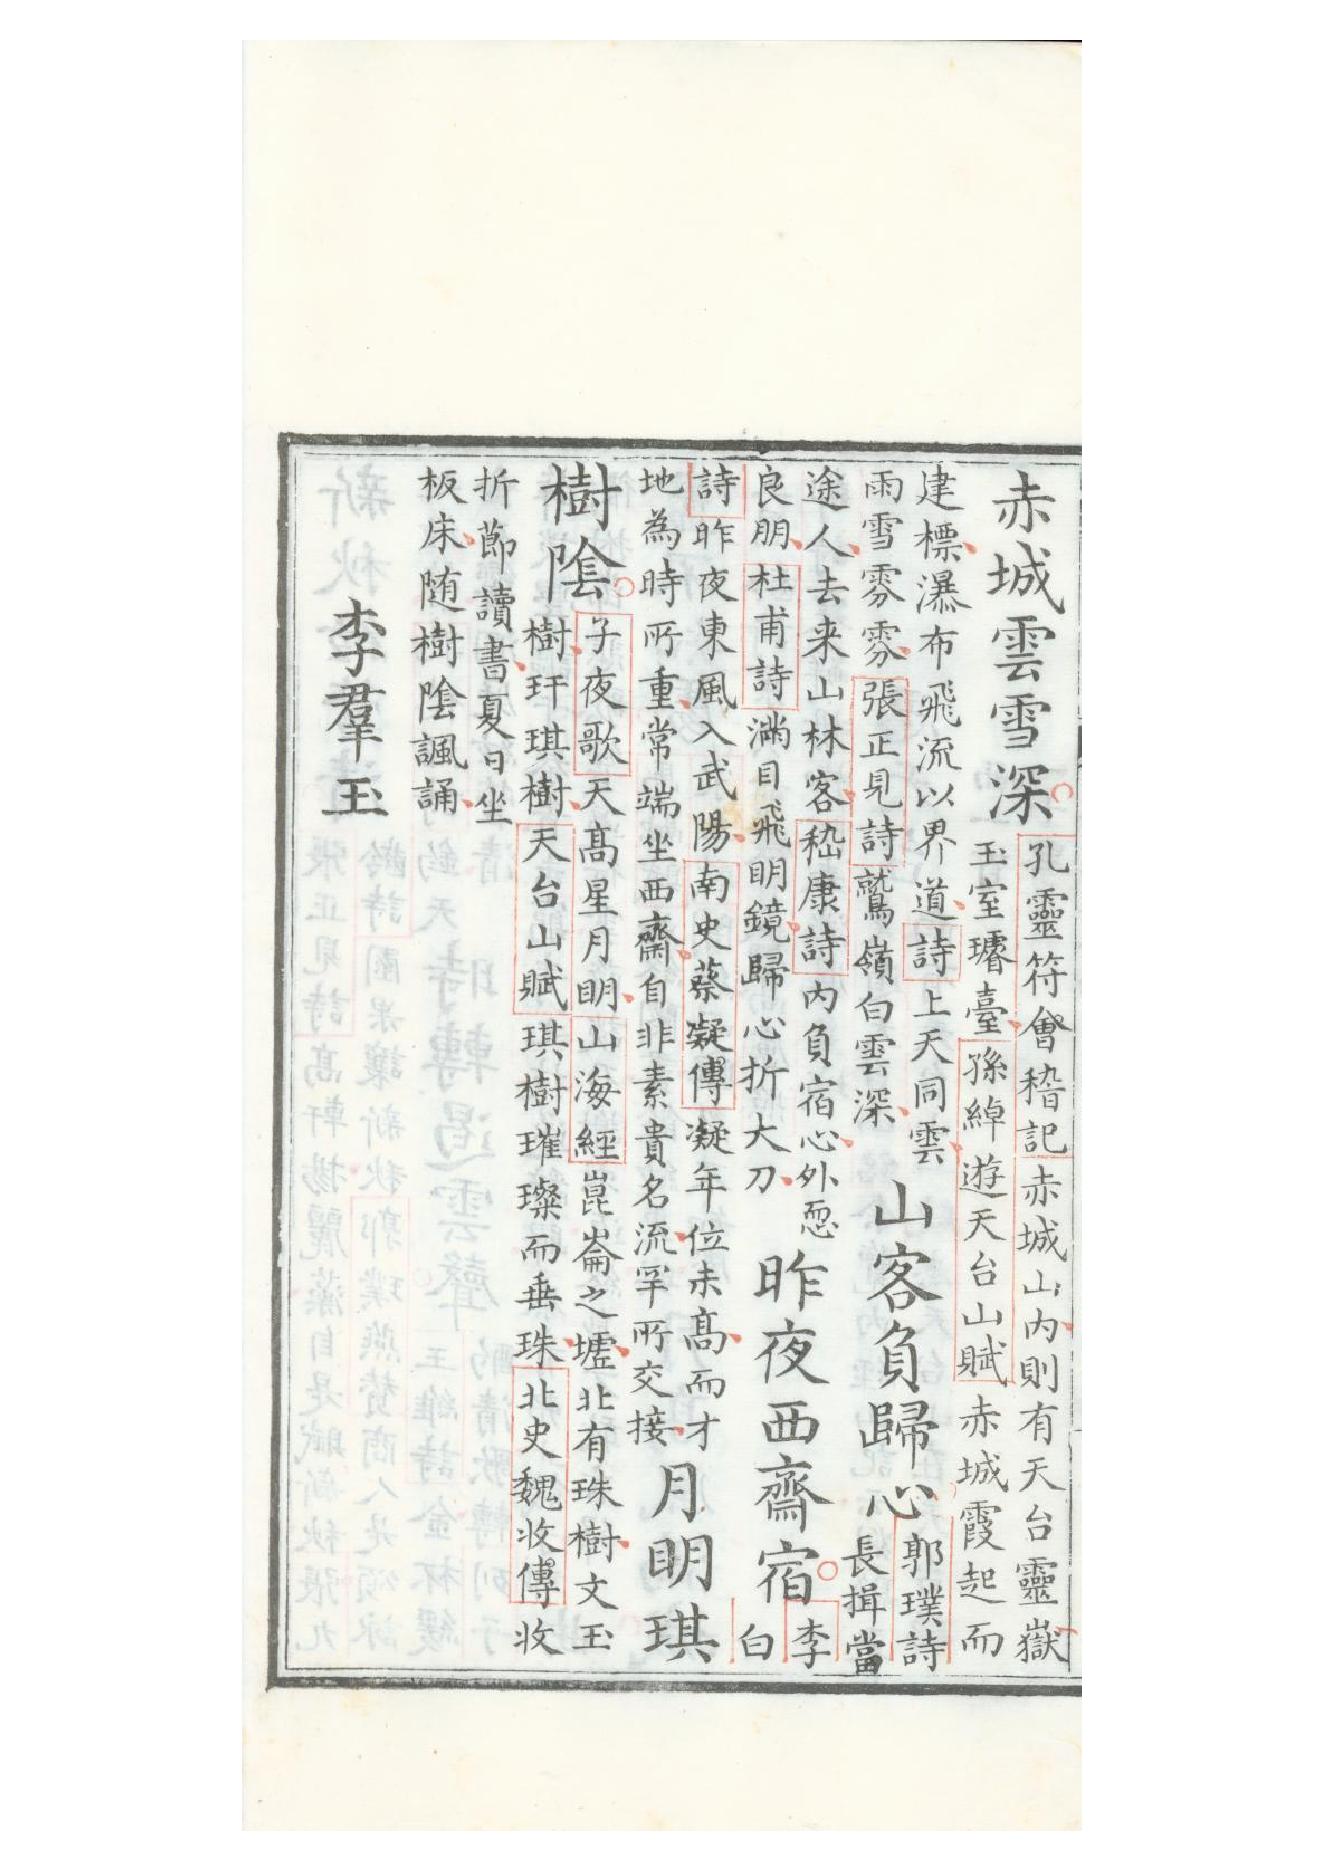 赤城雲雪深
孔靈符會稽記赤城山内則有天台靈嶽
玉室璿臺孫綽遊天台山賦赤城霞起而
建標瀑布飛流以界道詩上天同雲
雨雪雰雰張正見詩鷲嶺白雲深
山客負歸心
郭璞詩
長揖當
途人去来山林客嵇康詩内負宿心外恧
良朋杜甫詩滿目飛明鏡歸心折大刀
昨夜西齋宿
李
白
詩昨夜東風入武陽南史蔡凝傳凝年位未髙而才
地為時所重常端坐西齋自非素貴名流罕所交接
月明琪
樹陰
子夜歌天髙星月明山海經崑崙之墟北有珠樹文玉
樹玕琪樹天台山賦琪樹璀璨而垂珠北史魏收傳收
折節讀書夏日坐
板床随樹陰諷誦
李羣玉